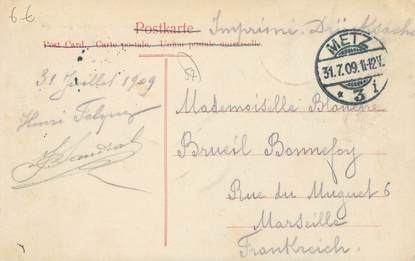 6 €
Postkarte
Imprimé. Drucksache
Post Card, Carte postale, Union postale universelle.
METZ
31.7.09.11-12V.
* 3 i
31 Juillet 1909
57
Henri
Mademoiselle Blanche
Brueil Bonnefoy
Rue du Muguet 6
Marseille
Frankreich.